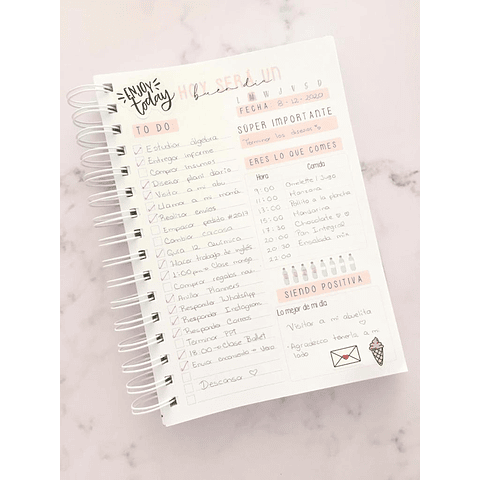 ENJOY today
HOY SERÁ UN
buen día
L M W J V S D
FECHA 8-12-2020
TO DO
SÚPER IMPORTANTE
Terminar los deberes
Estudiar álgebra
Entregar informe
Comprar insumos
Diseñar planif diario
Visita a mi abu
Llamar a mi mamá
Realizar envíos
Empacar pedido #2017
Cambia carcasa
Guía 12 Química
Hacer trabajo de inglés
1:00pm = Clase
Comprar regalos nav
Anillar Planners
Responder WhatsApp
Responder Instagram
Responder Correos
Terminar PPT
18:00 = Clase Ballet
Envia
Descansa ♡
ERES LO QUE COMES
Hora Comida
9:00 Omelette / Jugo
11:00 Manzana
13:00 Pollito a la plancha
15:00 Mandarina
17:00 Chocolate
20:00 Pan Integral
20:30 Ensalada
22:00
SIENDO POSITIVA
Lo mejor de mi día
- Visitar a mi abuelita
- Agradezco tenerla a mi
lado